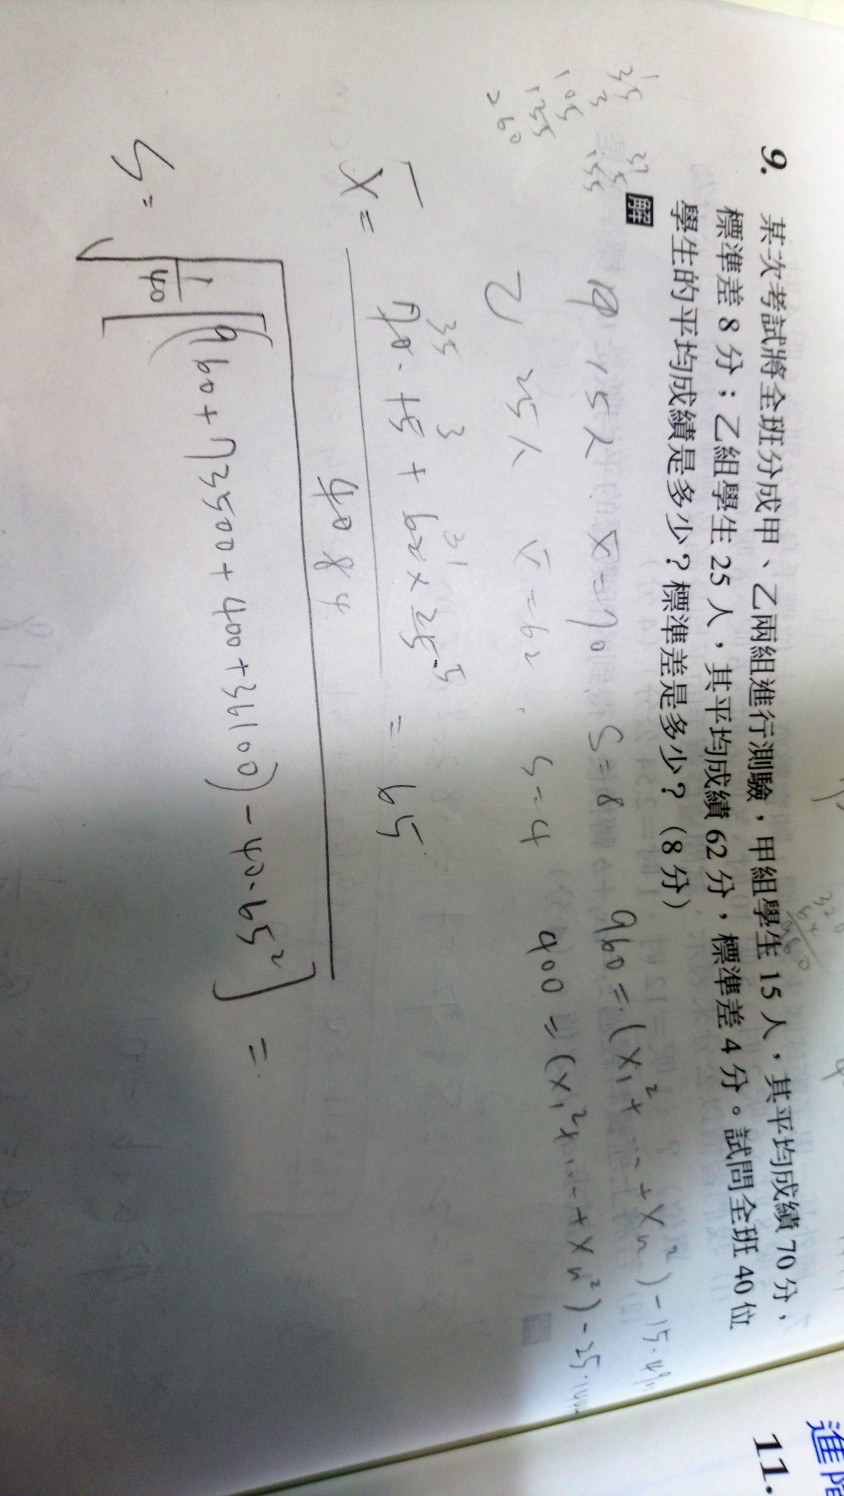 9. 某次考試將全班分成甲、乙兩組進行測驗，甲組學生 15 人，其平均成績 70 分，
標準差 8 分；乙組學生 25 人，其平均成績 62 分，標準差 4 分。試問全班 40 位
學生的平均成績是多少？標準差是多少？（8 分）
解
甲 15人 x̄=70 S=8 960=(x₁²+…+xₙ²)-15·49
乙 25人 x̄=62, S=4 400=(x₁²+…+xₙ²)-25·
x̄ = 70·15 + 62×25 = 65
40 8
S = √ 1/40 [(960+73500+400+36100)-40·65²] =
35
3
105
155
260
31
5
155
進階
11.